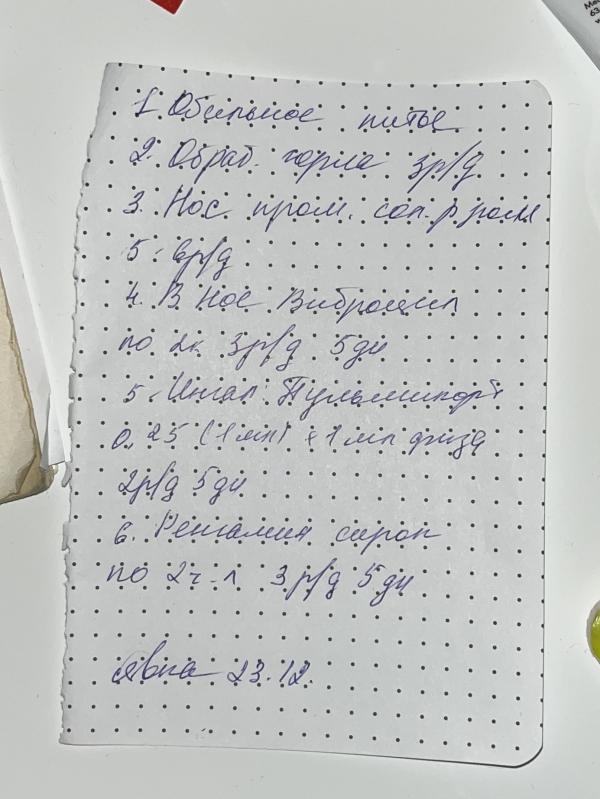 1. Обильное питье
2. Обраб. горла 3р/д
3. Нос пром. сол. р-ром
5-6р/д
4. В нос Виброцил
по 2к 3р/д 5дн
5. Ингал. Пульмикорт
0,25 (1мл) + 1мл физ
2р/д 5дн
6. Ренгалин сироп
по 2ч.л 3р/д 5дн
Явка 23.12.